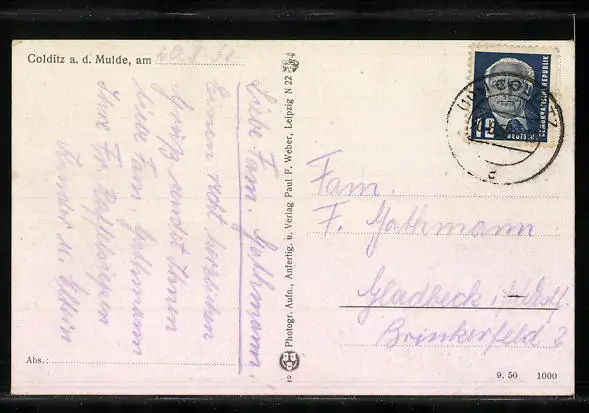 Colditz a. d. Mulde, am
Liebe Fam. Gathmann!
Einen recht herzlichen
Gruß sendet Ihnen
liebe Fam. Gathmann
Ihre Fr.
Kinder u. Eltern
Abs.:
Photogr. Aufn., Anfertig. u. Verlag Paul F. Weber, Leipzig N 22
2
DEUTSCHE DEMOKRATISCHE REPUBLIK
12
Fam.
F. Gathmann
Gladbeck i. Westf.
Brinkerfeld 2
9. 50 1000